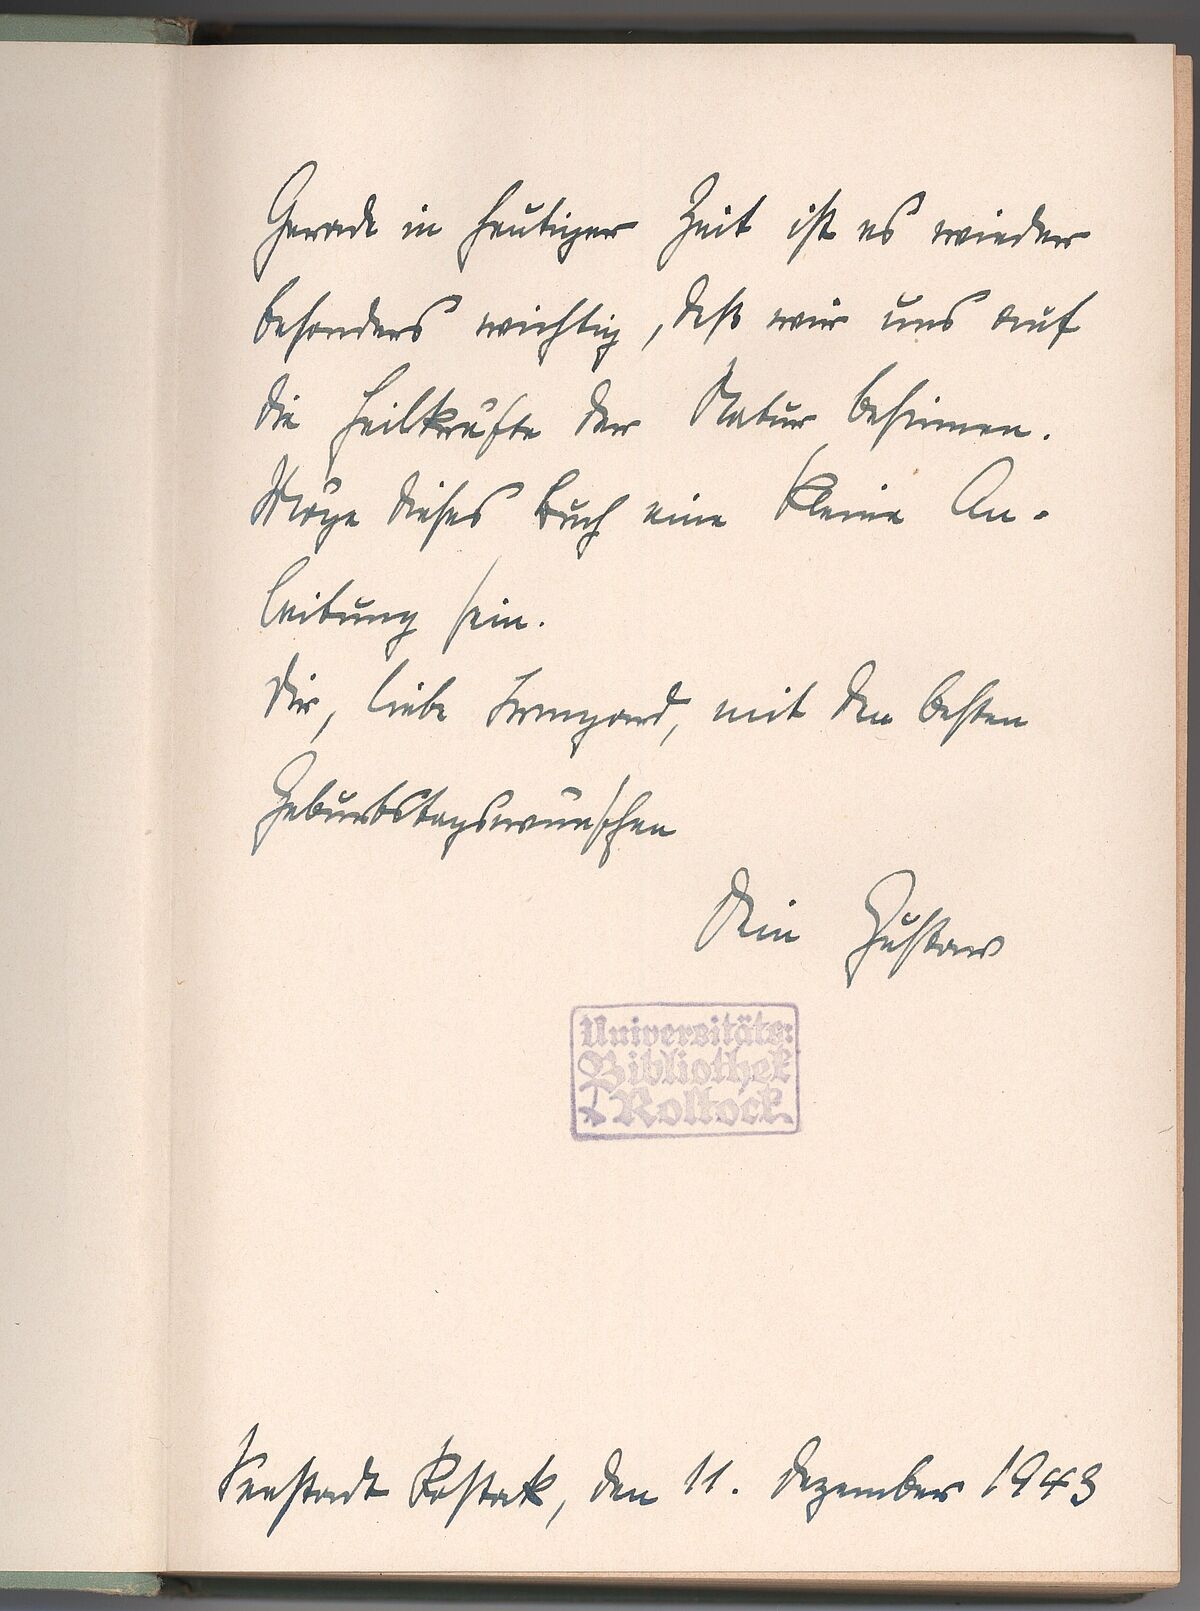 Gerade in heutiger Zeit ist es wieder
besonders wichtig, daß wir uns auf
die Heilkräfte der Natur besinnen.
Möge dieses Buch eine kleine An-
leitung sein.
Dir, liebe Irmgard, mit den besten
Geburtstagswünschen
Dein Gustav
Universitäts:
Bibliothek
Rostock
Seestadt Rostock, den 11. Dezember 1943